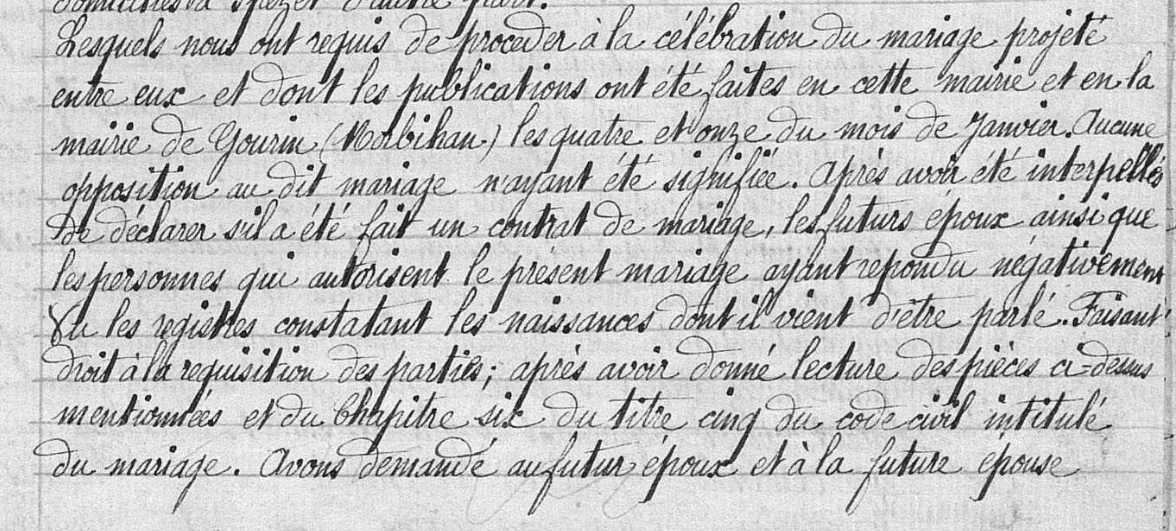 domiciliés à Spézet d'autre part.
Lesquels nous ont requis de procéder à la célébration du mariage projeté
entre eux et dont les publications ont été faites en cette mairie et en la
mairie de Gourin (Morbihan) les quatre et onze du mois de Janvier. Aucune
opposition au dit mariage n'ayant été signifiée. Après avoir été interpellés
de déclarer s'il a été fait un contrat de mariage, les futurs époux ainsi que
les personnes qui autorisent le présent mariage ayant repondu négativement
Vu les registres constatant les naissances dont il vient d'être parlé. Faisant
droit à la requisition des parties; après avoir donné lecture des pièces ci-dessus
mentionnées et du Chapitre six du titre cinq du code civil intitulé
du mariage. Avons demandé au futur époux et à la future épouse